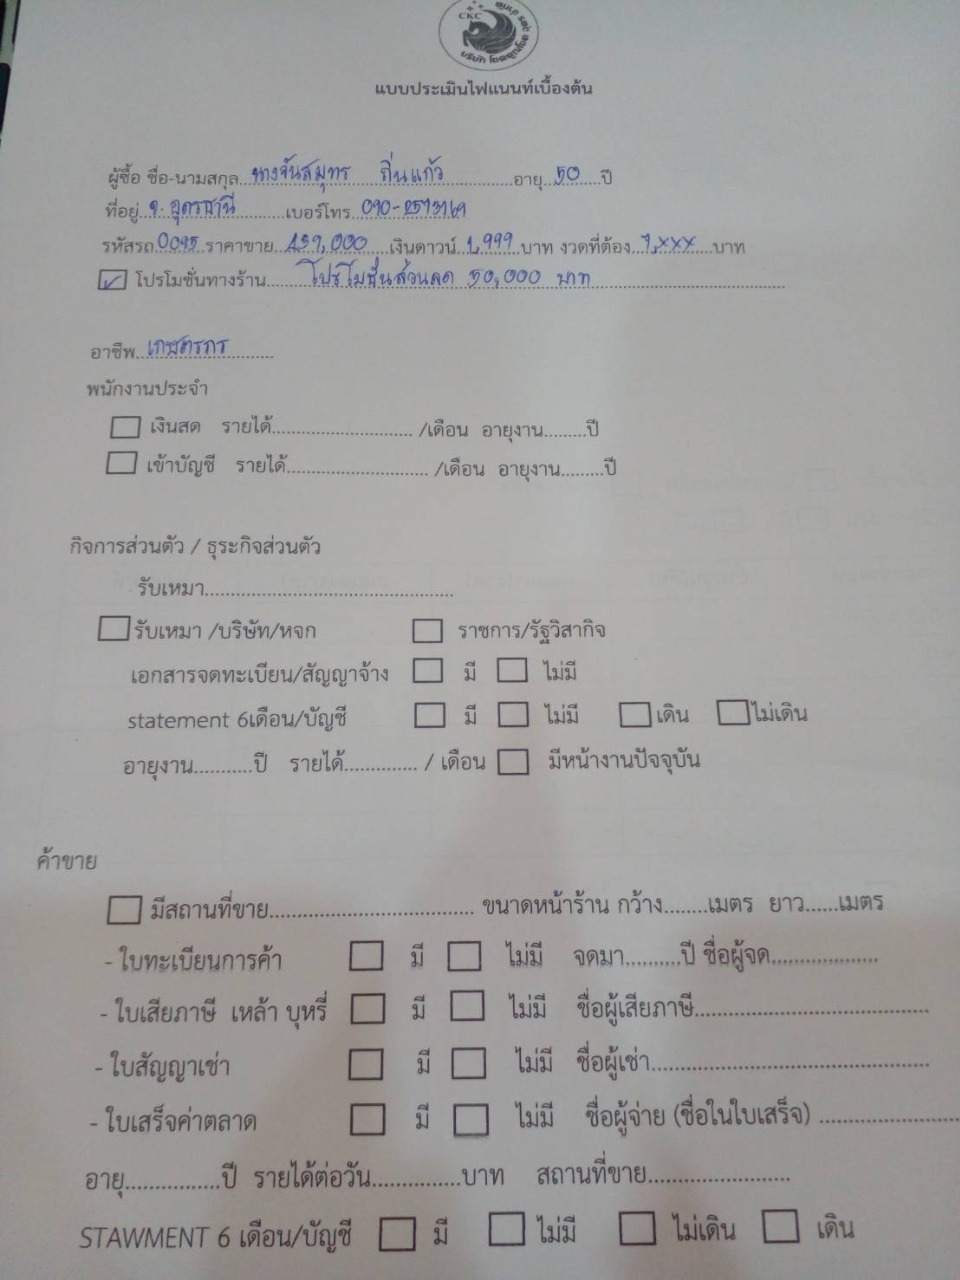 CKC
แบบประเมินไฟแนนท์เบื้องต้น
ผู้ซื้อ ชื่อ-นามสกุล...นางจันสมุทร กิ่นแก้ว...อายุ...50...ปี
ที่อยู่ จ.อุดรธานี...เบอร์โทร 090-2573169
รหัสรถ 0095 ราคาขาย...459,000...เงินดาวน์ 1,999 บาท งวดที่ต้อง 9,xxx...บาท
โปรโมชั่นทางร้าน...โปรโมชั่นส่วนลด 50,000 บาท
อาชีพ...เกษตรกร
พนักงานประจำ
เงินสด รายได้.../เดือน อายุงาน...ปี
เข้าบัญชี รายได้.../เดือน อายุงาน...ปี
กิจการส่วนตัว / ธุระกิจส่วนตัว
รับเหมา...
รับเหมา /บริษัท/หจก ราชการ/รัฐวิสากิจ
เอกสารจดทะเบียน/สัญญาจ้าง มี ไม่มี
statement 6เดือน/บัญชี มี ไม่มี เดิน ไม่เดิน
อายุงาน...ปี รายได้... / เดือน มีหน้างานปัจจุบัน
ค้าขาย
มีสถานที่ขาย... ขนาดหน้าร้าน กว้าง...เมตร ยาว...เมตร
- ใบทะเบียนการค้า มี ไม่มี จดมา...ปี ชื่อผู้จด...
- ใบเสียภาษี เหล้า บุหรี่ มี ไม่มี ชื่อผู้เสียภาษี...
- ใบสัญญาเช่า มี ไม่มี ชื่อผู้เช่า...
- ใบเสร็จค่าตลาด มี ไม่มี ชื่อผู้จ่าย (ชื่อในใบเสร็จ) ...
อายุ...ปี รายได้ต่อวัน...บาท สถานที่ขาย...
STAWMENT 6 เดือน/บัญชี มี ไม่มี ไม่เดิน เดิน